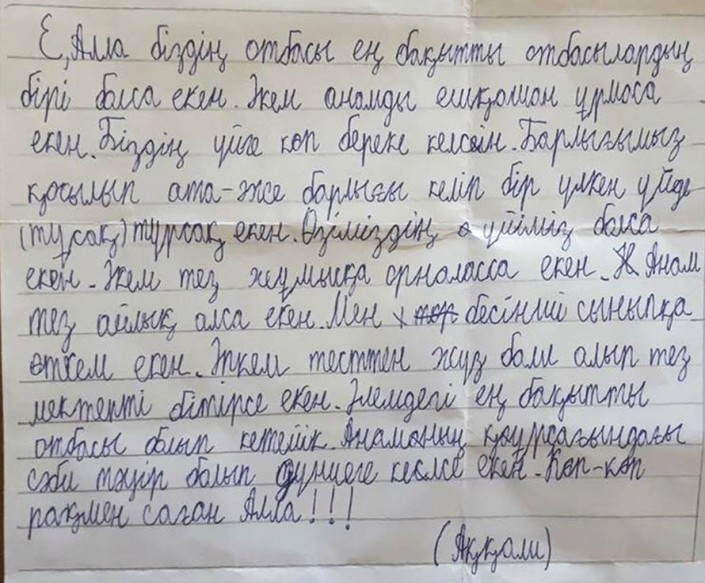 Е, Алла біздің отбасы ең бақытты отбасылардың
бірі болса екен. Әкем анамды ешқашан ұрмаса
екен. Біздің үйге көп береке келсін. Барлығымыз
қосылып ата-әже барлығы келіп бір үлкен үйде
(тұсақ) тұрсақ екен. Өзіміздің үйіміз болса
екен. Әкем тез жұмысқа орналасса екен. Анам
тез айлық алса екен. Мен бесінші сыныпқа
өткем екен. Әпкем тесттен жүз бали алып тез
мектепті бітірсе екен. Әлемдегі ең бақытты
отбасы болып кетейік. Анамның құрсағындағы
сәби тәуір болып дүниеге келсе екен. Көп-көп
рақмен саған Алла!!!
(Аққали)